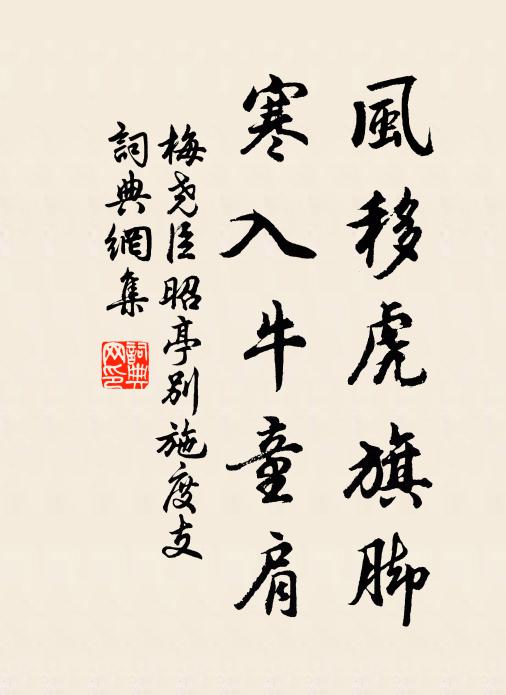 風移虎旗脚
寒入牛童肩
梅尧臣昭亭别施度支
詞典網集
詞典网印